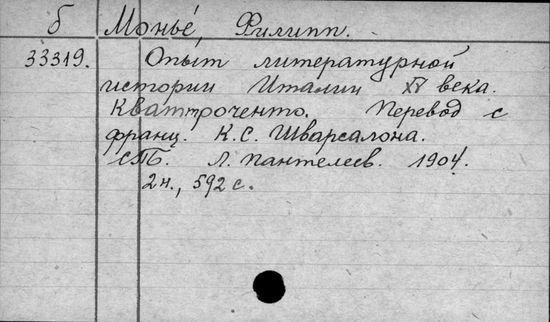 б Монье, Филипп.
33319. Опыт литературной
истории Италии XV века.
Кваттроченто. Перевод с
франц. К.С. Шварсалона.
СПБ. Л. Пантелеев. 1904.
2 н., 592 с.